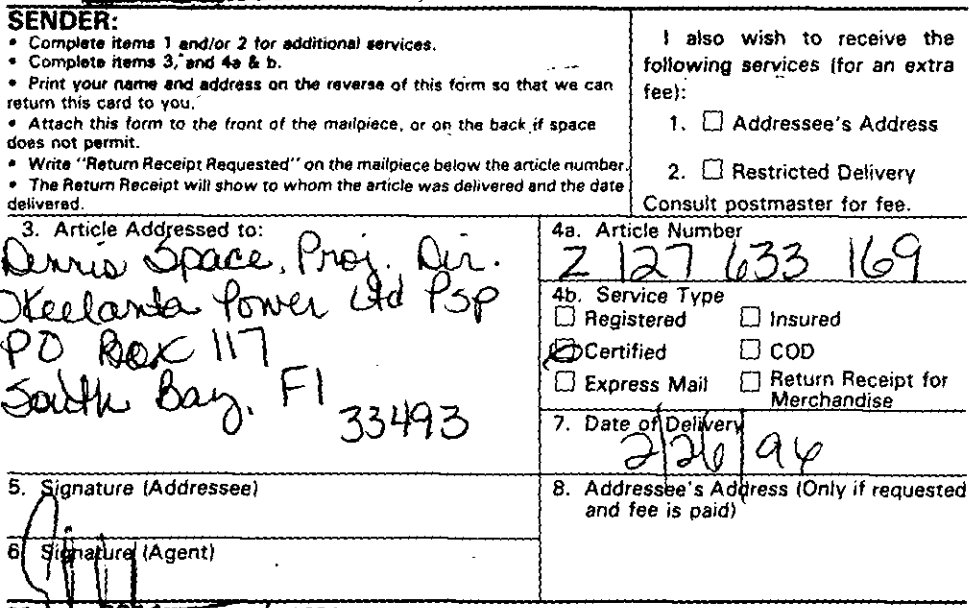 SENDER:
• Complete items 1 and/or 2 for additional services.
• Complete items 3, and 4a & b.
• Print your name and address on the reverse of this form so that we can
return this card to you.
• Attach this form to the front of the mailpiece, or on the back if space
does not permit.
• Write "Return Receipt Requested" on the mailpiece below the article number.
• The Return Receipt will show to whom the article was delivered and the date
delivered.
I also wish to receive the
following services (for an extra
fee):
1. ☐ Addressee's Address
2. ☐ Restricted Delivery
Consult postmaster for fee.
3. Article Addressed to:
Dennis Space, Proj. Dir.
Okeelanta Power Ltd Psp
PO Box 117
South Bay, Fl
33493
4a. Article Number
Z 127 633 169
4b. Service Type
☐ Registered ☐ Insured
☒ Certified ☐ COD
☐ Express Mail ☐ Return Receipt for
Merchandise
7. Date of Delivery
2/26/96
5. Signature (Addressee)
8. Addressee's Address (Only if requested
and fee is paid)
6. Signature (Agent)